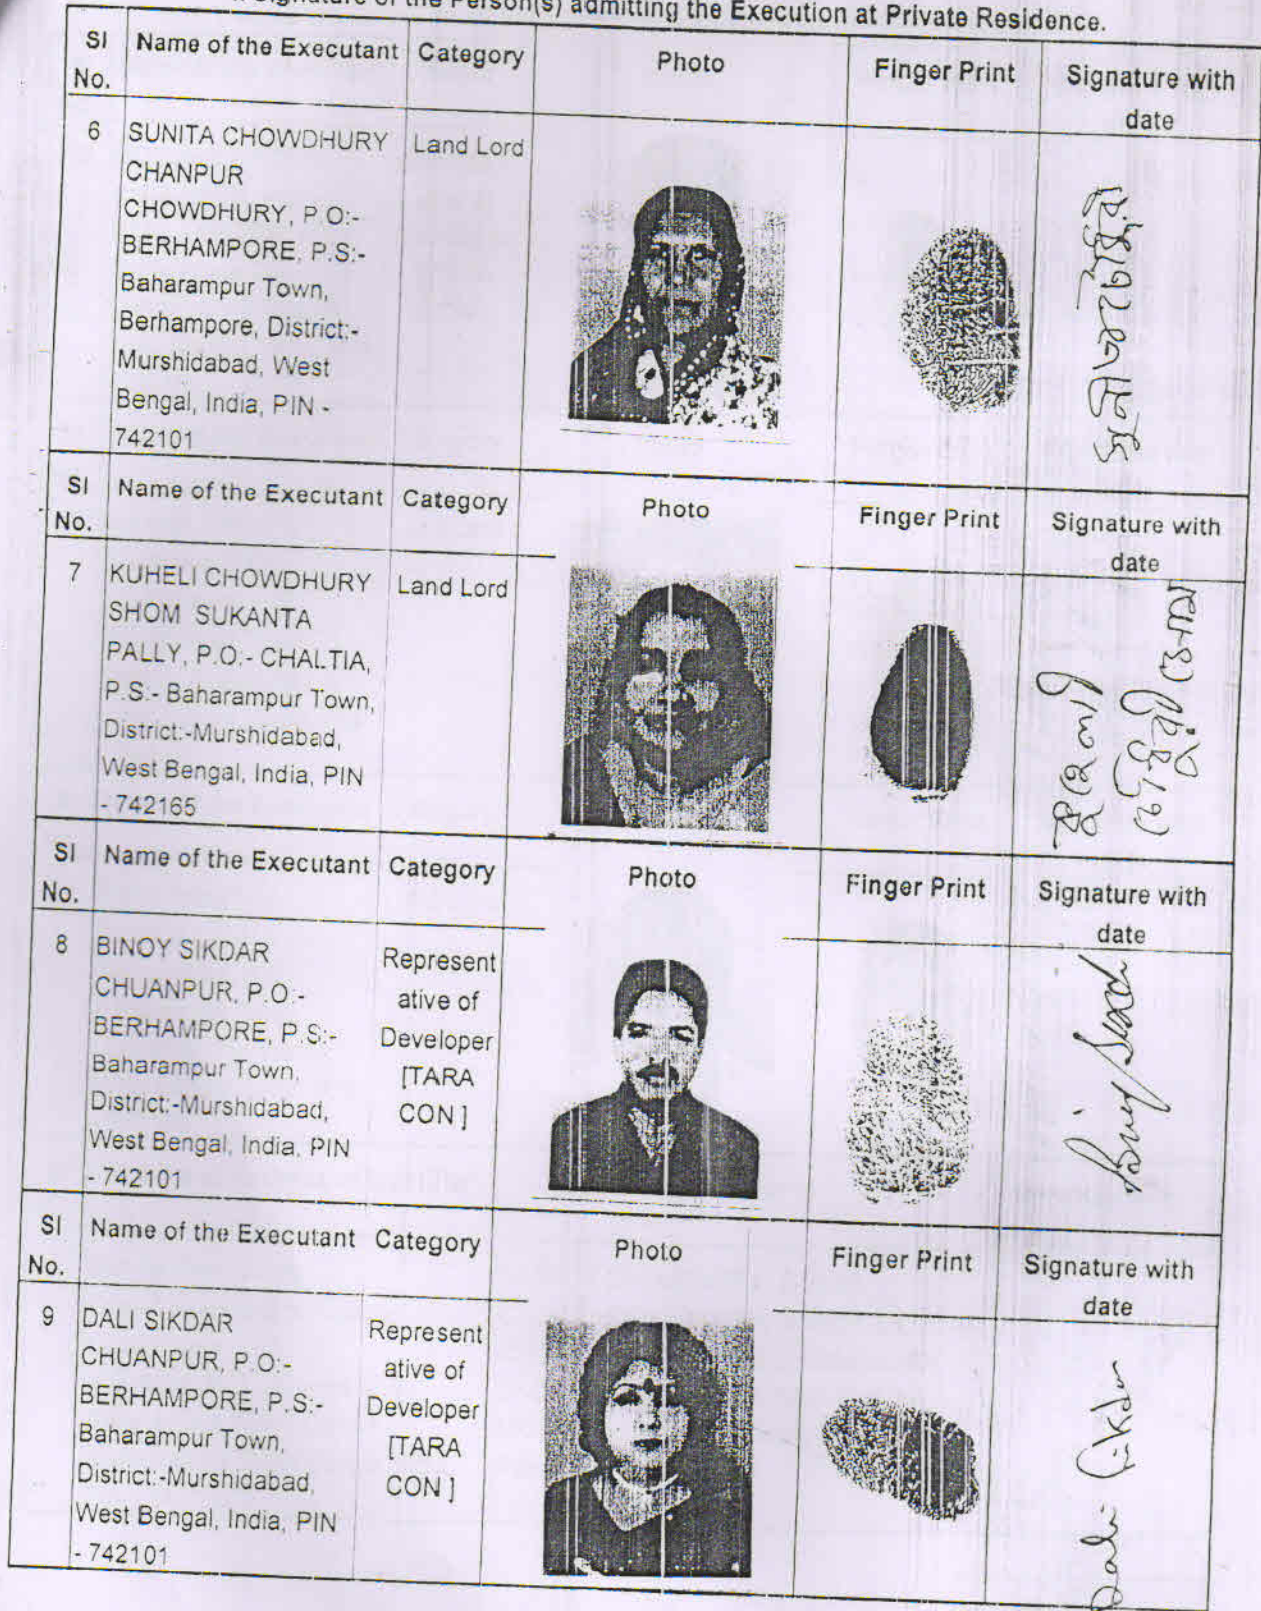 Signature of the Person(s) admitting the Execution at Private Residence.
Sl No. Name of the Executant Category Photo Finger Print Signature with date
6 SUNITA CHOWDHURY Land Lord
CHANPUR
CHOWDHURY, P.O:-
BERHAMPORE, P.S:-
Baharampur Town,
Berhampore, District:-
Murshidabad, West
Bengal, India, PIN -
742101
Sl No. Name of the Executant Category Photo Finger Print Signature with date
7 KUHELI CHOWDHURY Land Lord
SHOM SUKANTA
PALLY, P.O:- CHALTIA,
P.S:- Baharampur Town,
District:-Murshidabad,
West Bengal, India, PIN
- 742165
Sl No. Name of the Executant Category Photo Finger Print Signature with date
8 BINOY SIKDAR
CHUANPUR, P.O:-
BERHAMPORE, P.S:-
Baharampur Town,
District:-Murshidabad,
West Bengal, India, PIN
- 742101
Represent
ative of
Developer
[TARA
CON ]
Sl No. Name of the Executant Category Photo Finger Print Signature with date
9 DALI SIKDAR
CHUANPUR, P.O:-
BERHAMPORE, P.S:-
Baharampur Town,
District:-Murshidabad,
West Bengal, India, PIN
- 742101
Represent
ative of
Developer
[TARA
CON ]
Dali Sikdar